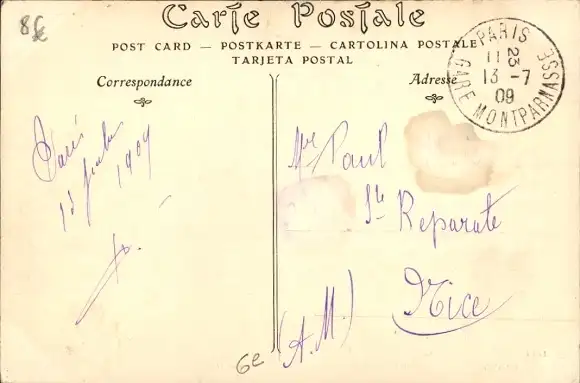 8€
Carte Postale
POST CARD — POSTKARTE — CARTOLINA POSTALE
TARJETA POSTAL
Correspondance
Adresse
PARIS
11 23
13 -7
09
GARE MONTPARNASSE
Paris
13 juillet
1909
Mr Paul
Ste Reparate
Nice
(A.M)
6e